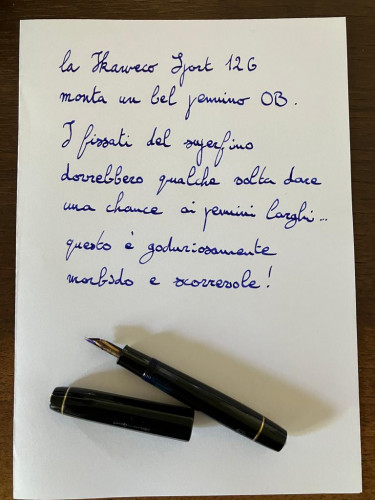 la Kaweco Sport 12G
monta un bel pennino OB.
I fissati del superfino
dovrebbero qualche volta dare
una chance ai pennini larghi...
questo è goduriosamente
morbido e scorrevole!